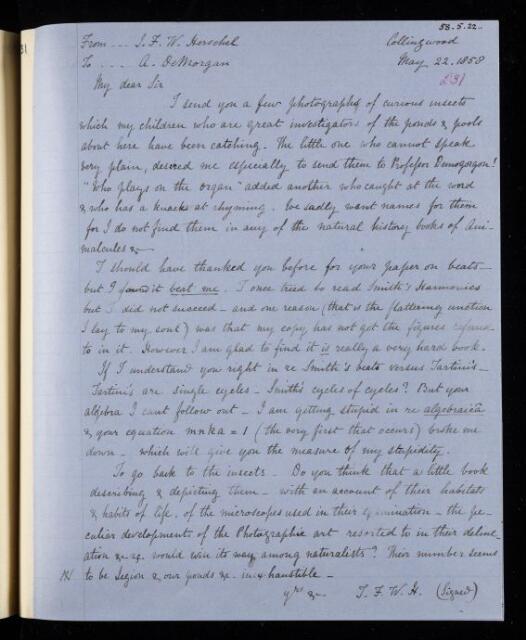 58.5.22
From --- J. F. W. Herschel Collingwood
To --- A. DeMorgan May 22. 1858
231
My dear Sir
I send you a few photographs of curious insects
which my children who are great investigators of the ponds & pools
about here have been catching. The little one who cannot speak
very plain, desired me especially to send them to Professor Demogorgon!
"Who plays on the organ" added another who caught at the word
& who has a knack at rhyming. We sadly want names for them
for I do not find them in any of the natural history books of Ani-
malcules &c
I should have thanked you before for your paper on beats -
but I found it beat me. I once tried to read Smith's Harmonics
but I did not succeed - and one reason (that is the flattering unction
I lay to my soul) was that my copy has not got the figures referred
to in it. However I am glad to find it is really a very hard book.
If I understand you right in re Smith's beats versus Tartini's -
Tartini's are single cycles - Smith's cycles of cycles? But your
algebra I cant follow out - I am getting stupid in re algebraicâ
& your equation mnka = 1 (the very first that occurs) broke me
down - which will give you the measure of my stupidity.
To go back to the insects - Do you think that a little book
describing & depicting them - with an account of their habitats
& habits of life, of the microscopes used in their examination - the pe-
culiar developments of the Photographic art resorted to in their deline-
ation &c. &c. would win its way among naturalists? Their number seems
to be legion & our ponds &c. inexhaustible -
yrs &c J. F. W. H. (signed)